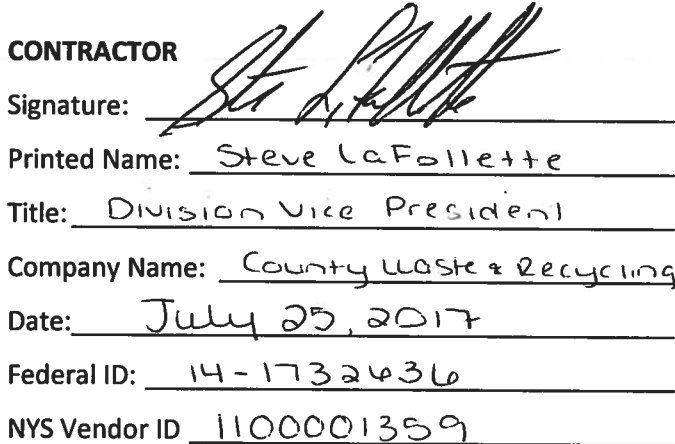 CONTRACTOR
Signature: Steve LaFollette
Printed Name: Steve LaFollette
Title: Division Vice President
Company Name: County Waste & Recycling
Date: July 25, 2017
Federal ID: 14-1732636
NYS Vendor ID 1100001359